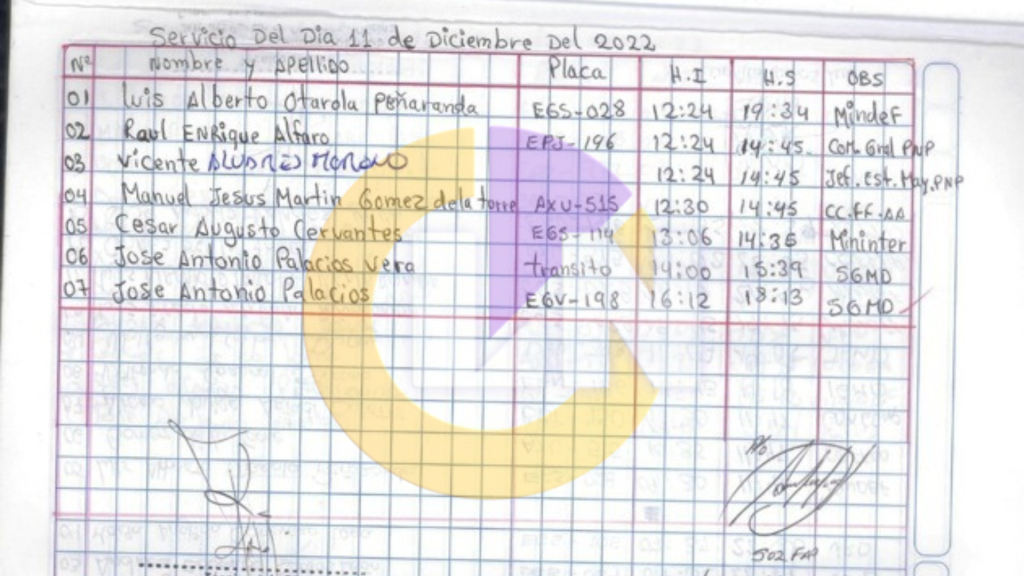 Servicio Del Dia 11 de Diciembre Del 2022
Nº Nombre y Apellido Placa H.I H.S OBS
01 Luis Alberto Otarola Peñaranda EGS-028 12:24 19:34 Mindef
02 Raul ENRique Alfaro EPJ-196 12:24 14:45 Com. Gral PNP
03 Vicente 12:24 14:45 Jef. Est. May. PNP
04 Manuel Jesus Martin Gomez de la torre AXU-515 12:30 14:45 CC.FF.AA
05 Cesar Augusto Cervantes EGS-114 13:06 14:35 Mininter
06 Jose Antonio Palacios Vera transito 14:00 15:39 SGMD
07 Jose Antonio Palacios EGV-198 16:12 18:13 SGMD
SO2 FAP